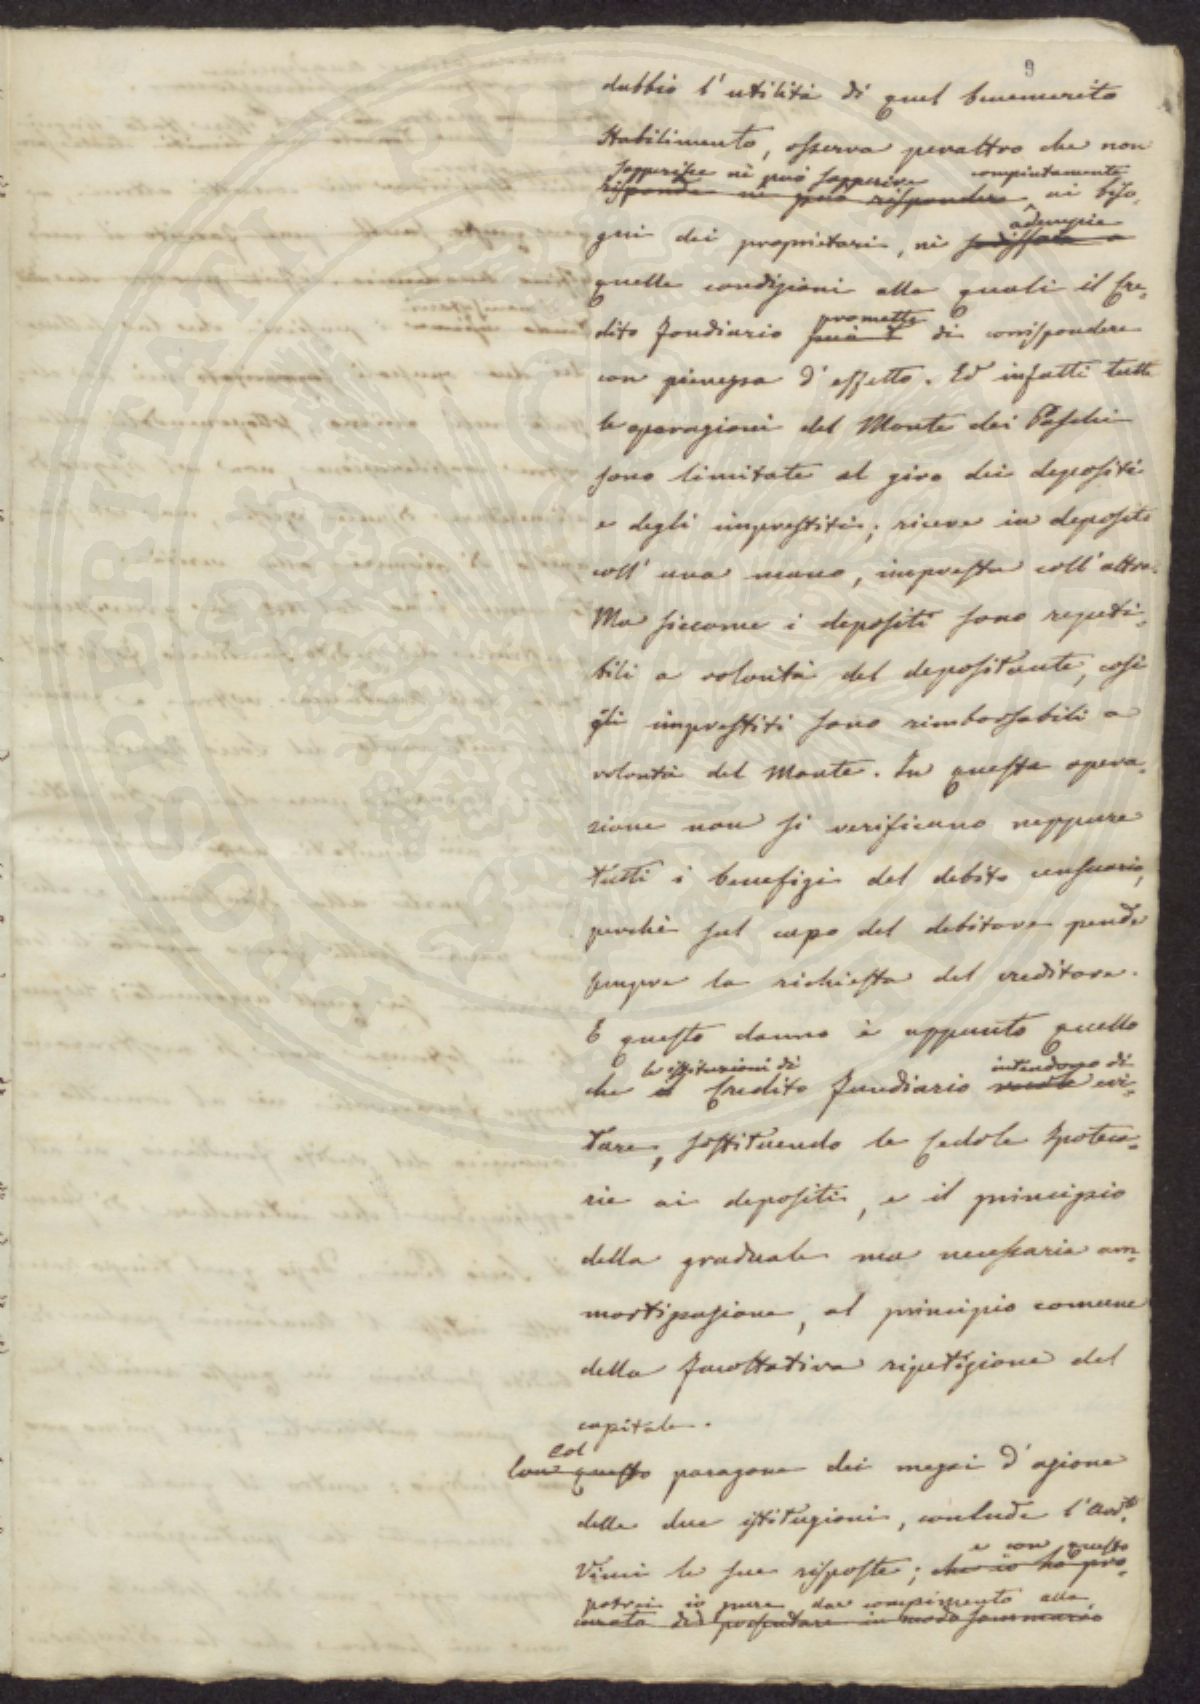 9
dubbio l'utilità di quel benemerito
Stabilimento, osserva peraltro che non
sopperisce nè può sopperire compiutamente
risponde nè può rispondere ai biso-
gni dei proprietari, nè
adempie
sodisfare a
quelle condizioni alle quali il Cre-
promette
dito fondiario di corrispondere
con pienezza d'effetto. Ed infatti tutte
le operazioni del Monte dei Paschi
sono limitate al giro dei depositi
e degli imprestiti; riceve in deposito
coll'una mano, impresta coll'altra.
Ma siccome i depositi sono repeti-
bili a volontà del depositante, così
gli imprestiti sono rimborsabili a
volontà del Monte. In questa opera-
zione non si verificano neppure
tutti i benefizi del debito censuario,
perchè sul capo del debitore pende
sempre la richiesta del creditore.
E questo danno è appunto quello
le istituzioni di intendono di
che il Credito fondiario vuole evi-
tare, sostituendo le Cedole Ipoteca-
rie ai depositi, e il principio
della graduale ma necessaria am-
mortizazione, al principio comune
della facoltativa ripetizione del
capitale.
Col
Con questo paragone dei mezzi d'azione
delle due istituzioni, conclude l'Avv.to
Vimi le sue risposte;
e con questo
che io ho pro-
potrei io pure dar compimento alla
curato di presentare in modo sommario